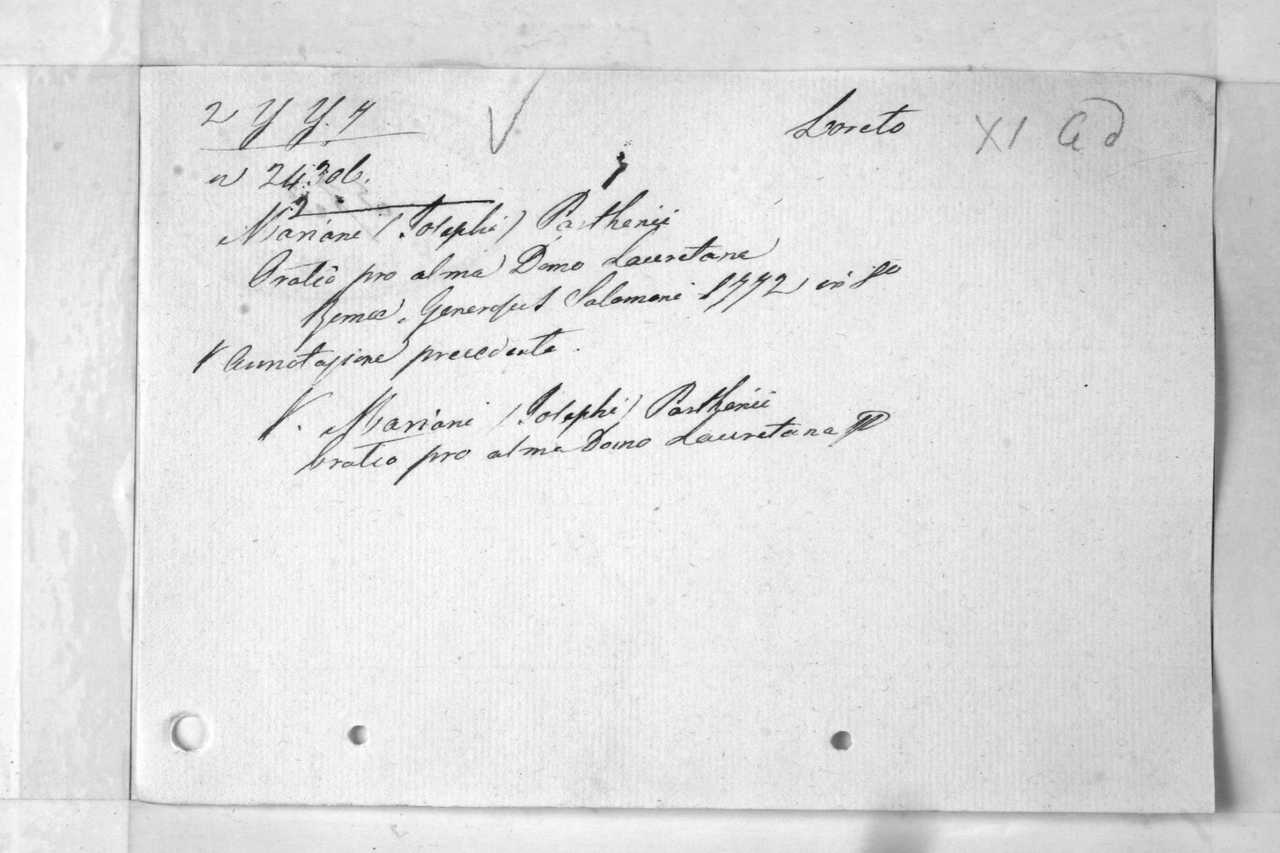 2 Y Y. 4
Loreto
XI a d
n 2430b.
Mariane (Josephi) Parthenii
Oratio pro alma Domo Lauretana
Romae. Generosus Salomoni 1772 in 8°
V Annotazione precedente.
V. Mariani (Josephi) Parthenii
oratio pro alma Domo Lauretana